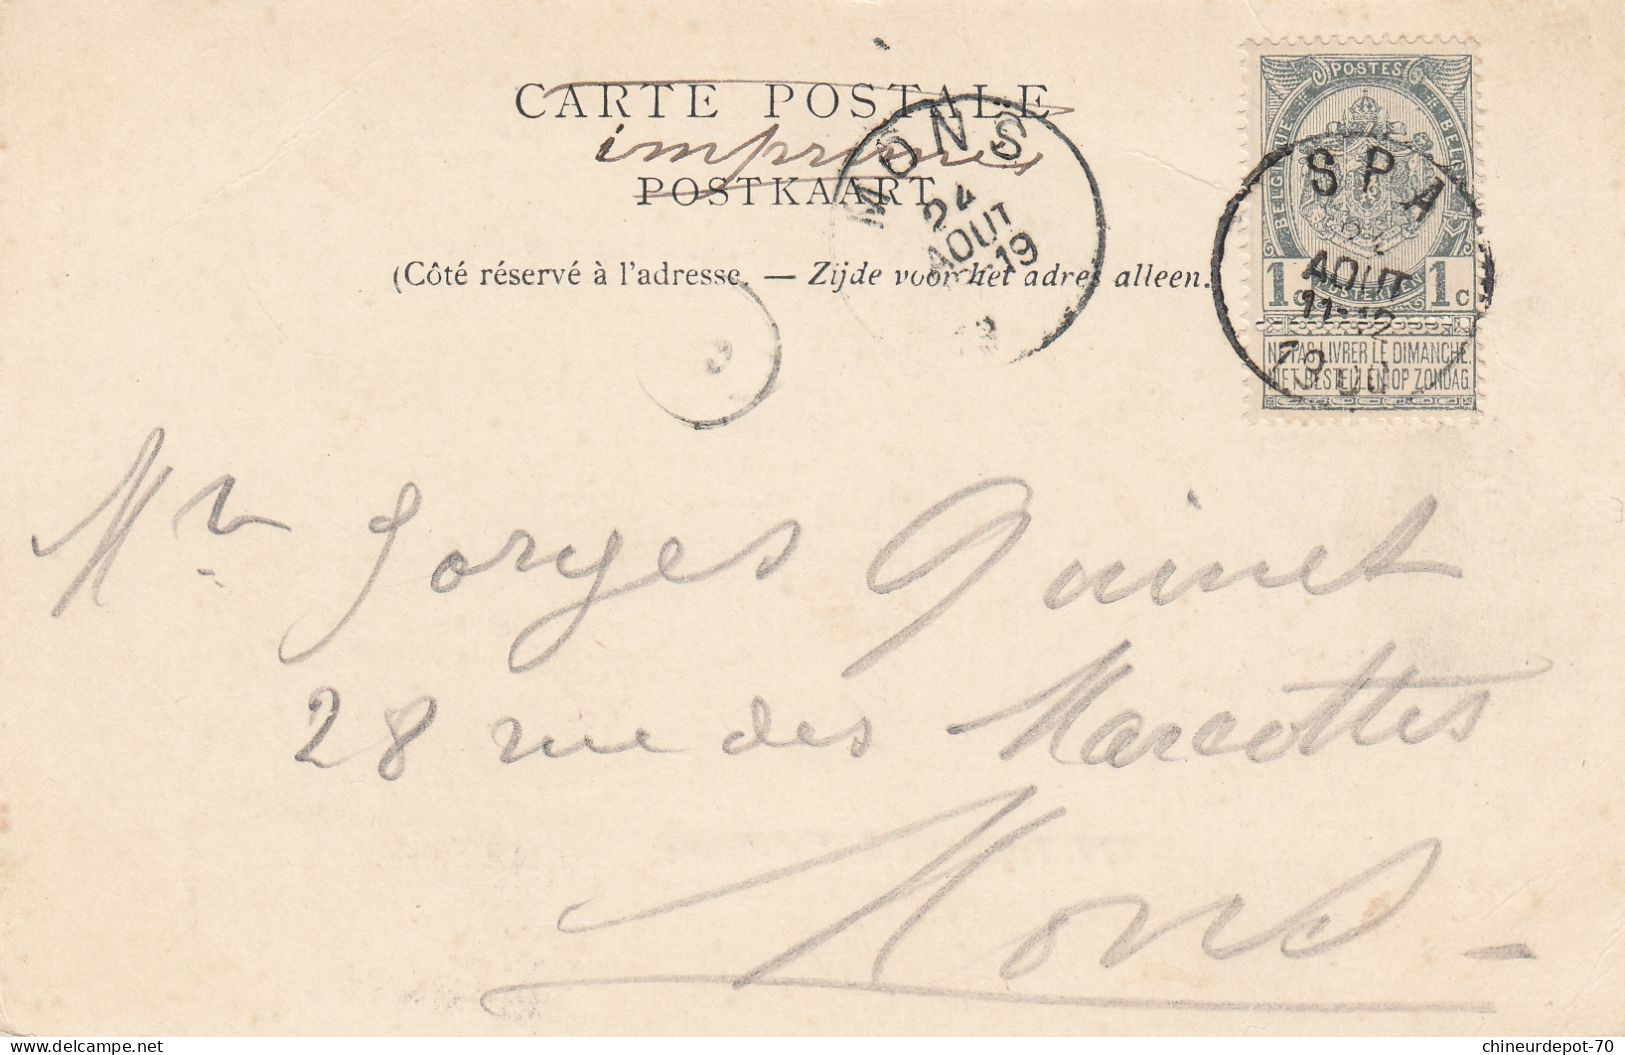 CARTE POSTALE
imprimés
POSTKAART
(Côté réservé à l'adresse. — Zijde voor het adres alleen.
MONS
24
AOUT
-19
POSTES
BELGIQUE
BELGIË
1c 1c
NE PAS LIVRER LE DIMANCHE.
NIET BESTELLEN OP ZONDAG.
SPA
AOUT
11-12
Mr Jorges Quinet
28 rue des Marcottes
Mons -
delcampe.net
chineurdepot-70